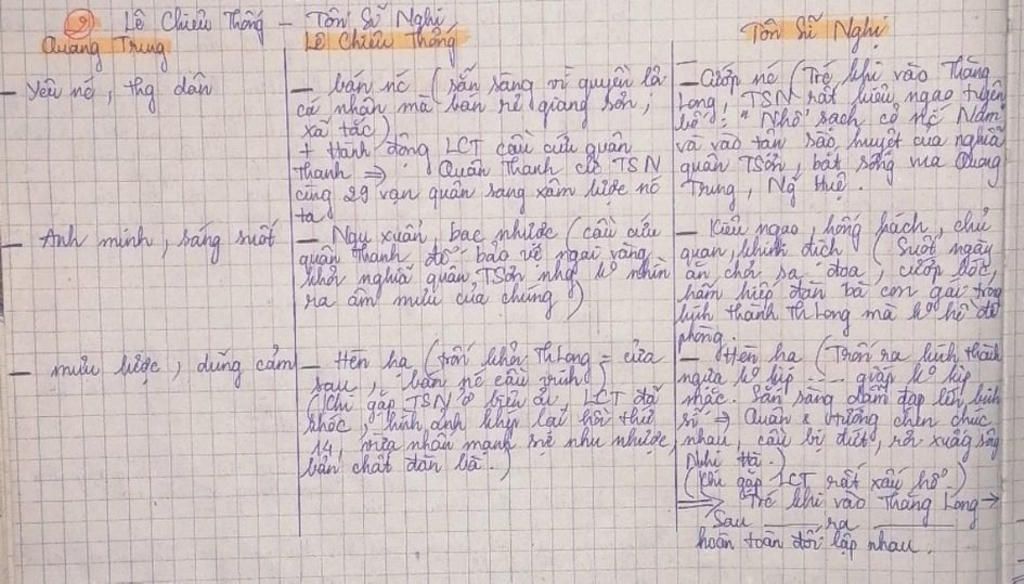 ② Lê Chiêu Thống – Tôn Sĩ Nghị
Quang Trung
- Yêu nc, thg dân
- Anh minh, sáng suốt
- mưu lược, dũng cảm
Lê Chiêu Thống
- bán nc (sẵn sàng vì quyền lợi
cá nhân mà bán rẻ giang sơn,
xã tắc)
+ Hành động LCT cầu cứu quân
thanh ⇒ Quân Thanh cử TSN
cùng 29 vạn quân sang xâm lược nc
ta
- Ngu xuẩn, bạc nhược (cầu cứu
quân Thanh để bảo vệ ngai vàng
khỏi nghĩa quân TSơn nhg ko nhìn
ra âm mưu của chúng)
- Hèn hạ (trốn khỏi ThLong = cửa
sau, bán nc cầu vinh)
(Khi gặp TSN ở biên ải, LCT đã
khóc, hình ảnh khép lại hồi thứ
14, vừa nhấn mạnh sự nhu nhược,
bản chất đàn bà.)
Tôn Sĩ Nghị
- Cướp nc (Trc khi vào Thăng
Long, TSN rất kiêu ngạo tuyên
bố: "Nhổ sạch cỏ nc Nam
và vào tận sào huyệt của nghĩa
quân TSơn, bắt sống vua Quang
Trung, Ng Huệ.
- Kiêu ngạo, hống hách, chủ
quan, khinh địch (Suốt ngày
ăn chơi sa đoạ, cướp bóc,
hãm hiếp đàn bà con gái trong
kinh thành ThLong mà ko hề đề
phòng.
- Hèn hạ (Trốn ra kinh thành
ngựa ko kịp ..... giáp ko kịp
mặc. Sẵn sàng dẫm đạp lên binh
sĩ ⇒ Quân & tướng chen chúc
nhau, cầu bị đứt, rơi xuống sông
Nhị Hà.)
(Khi gặp LCT rất xấu hổ)
⇒ Trc khi vào Thăng Long →
Sau ___ ra ___
hoàn toàn đối lập nhau.